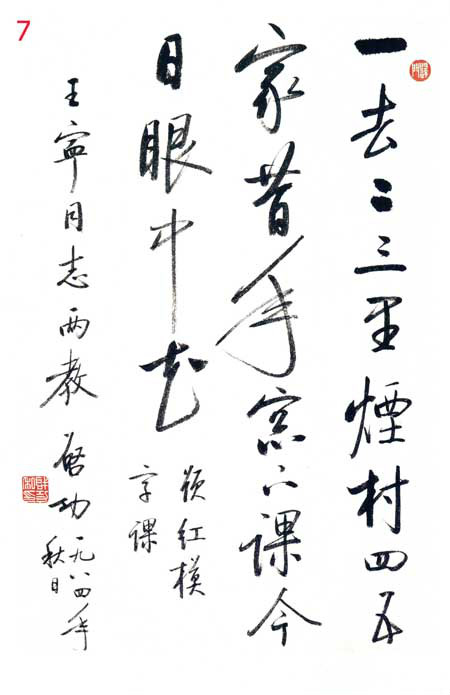 7
一去二三里煙村四五
家昔年窓下課今
日眼中花
紅模
字課
王寧同志两教 啓功 一九八四年
秋日